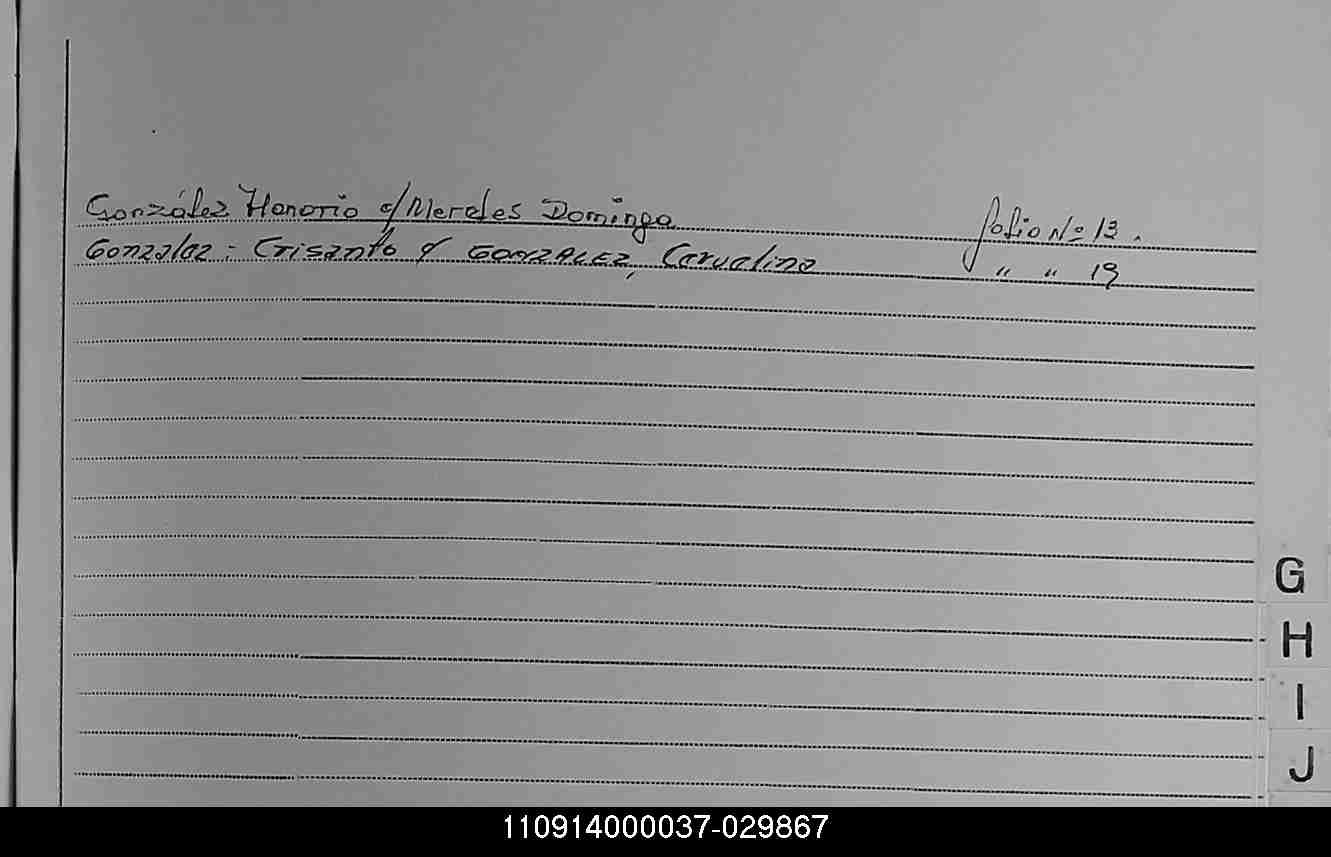 González Honorio c/ Mereles Dominga folio Nº 13.
Gonzalez: Crisanto c/ GONZALEZ, Carvalina " " 19
G
H
I
J
110914000037-029867